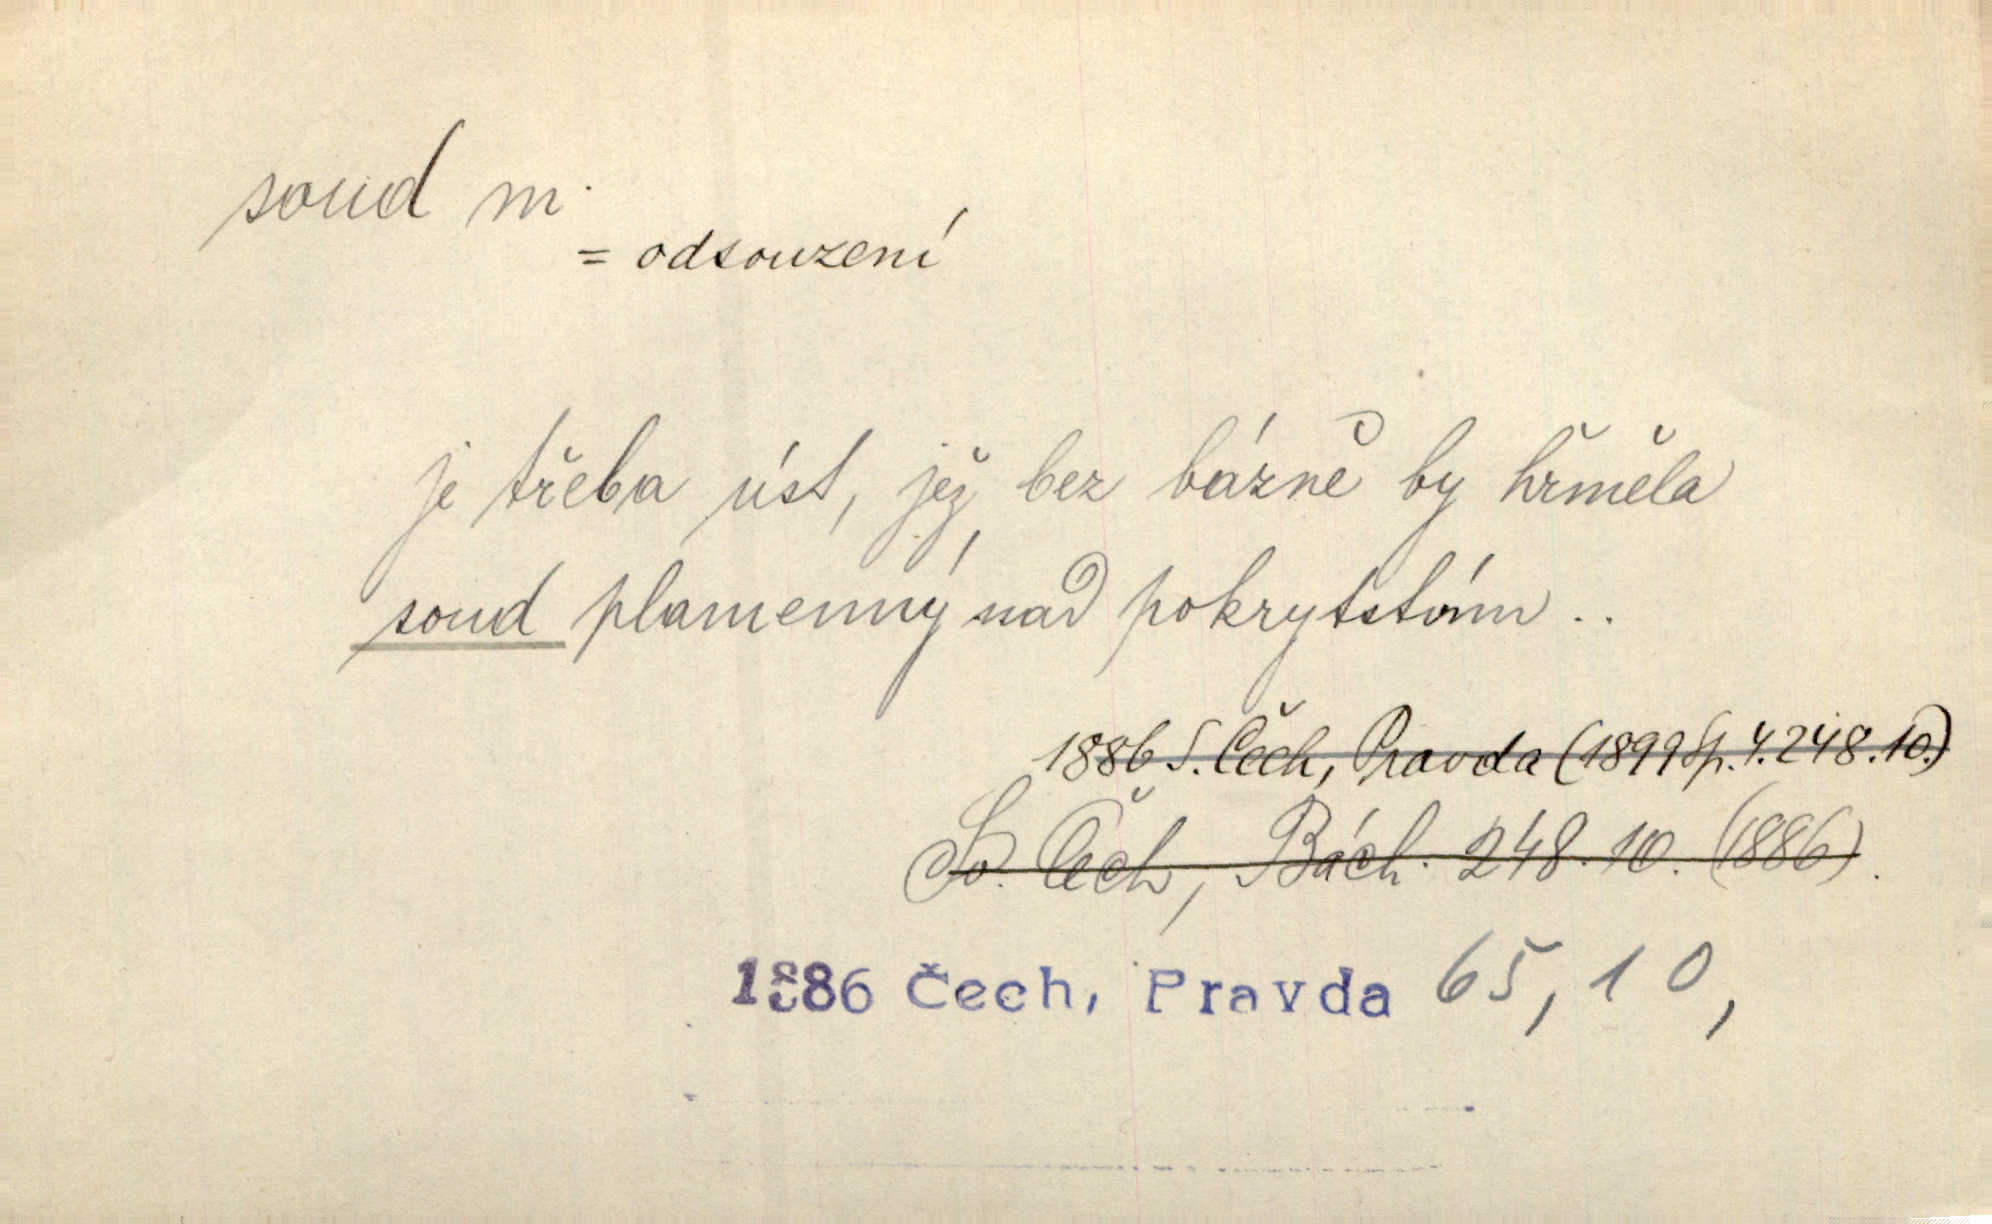 soud m.
= odsouzení
je třeba úst, jež bez bázně by hřměla
soud plamenný nad pokrytstvím ..
1886 S. Čech, Pravda (1899 Sp. 4. 248. 10.)
Sv. Čech, Bách. 248. 10. (1886).
1886 Čech, Pravda 65, 10,